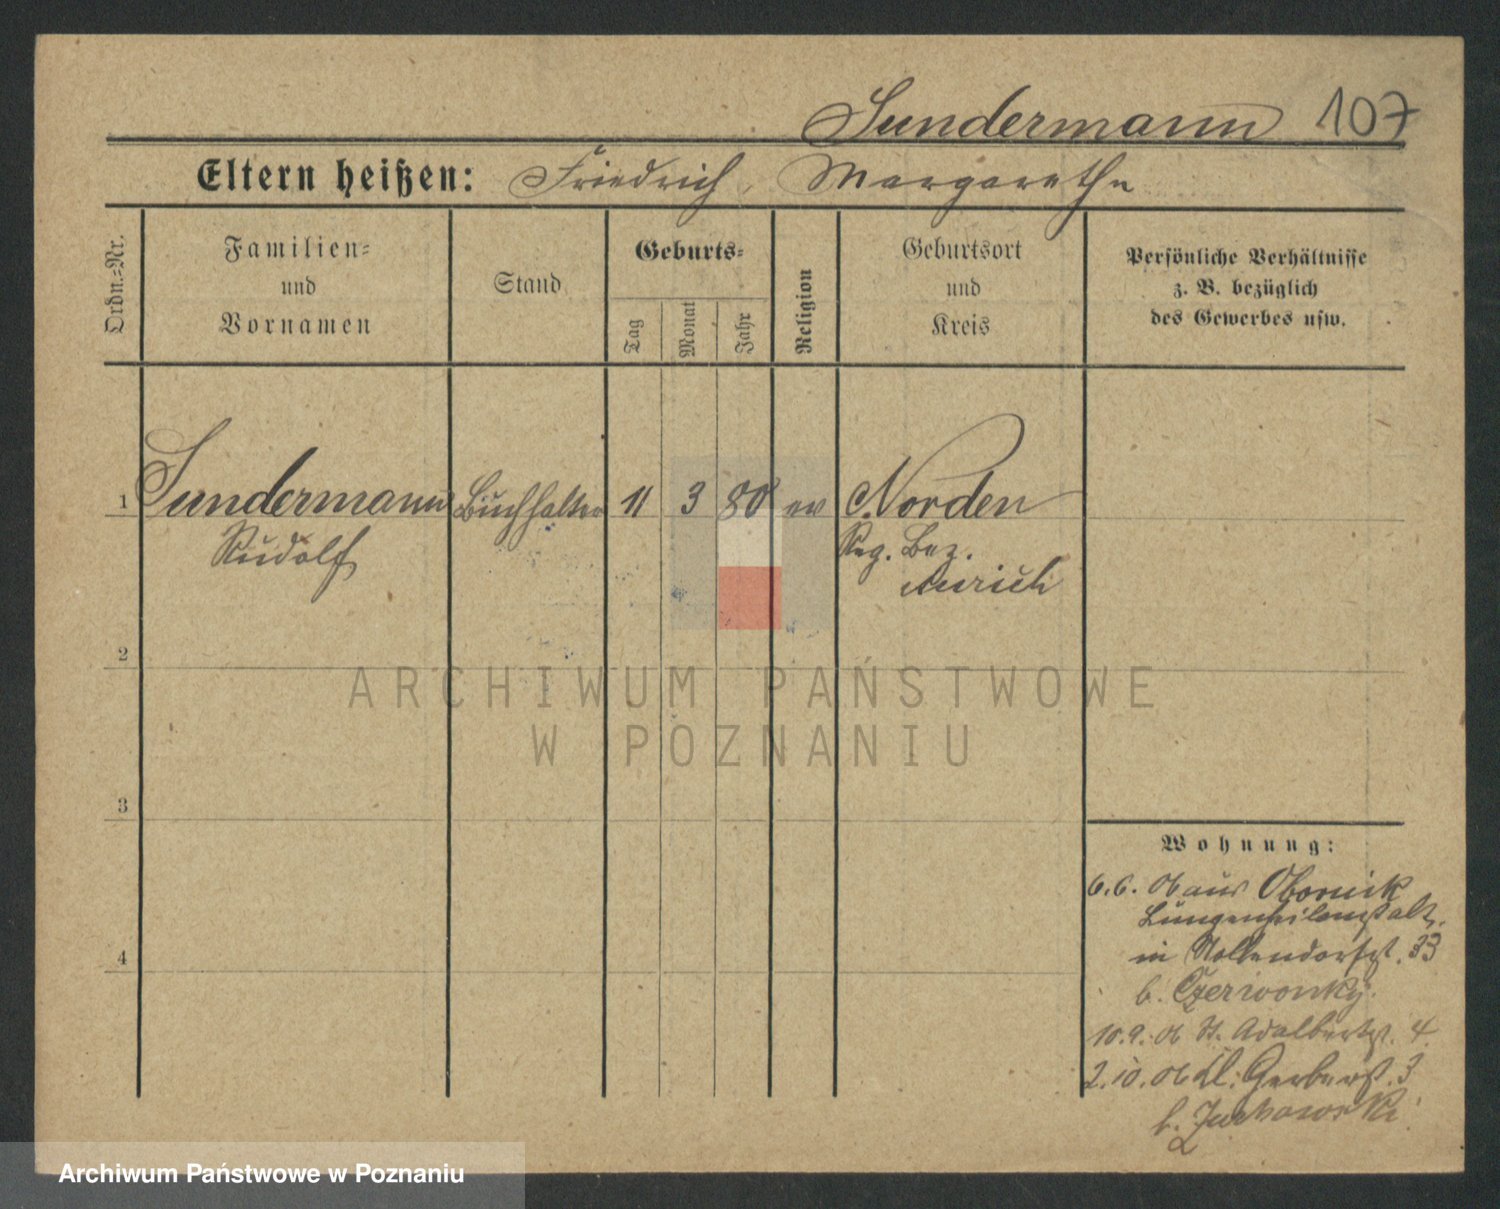 Sundermann 107
Eltern heißen: Friedrich, Margarethe
Ordn.=Nr.
Familien=
und
Vornamen
Stand
Geburts=
Tag
Monat
Jahr
Religion
Geburtsort
und
Kreis
Persönliche Verhältnisse
z. B. bezüglich
des Gewerbes usw.
1 Sundermann Buchhalter 11 3 80 ev Norden
Rudolf Reg. Bez.
Aurich
2
3
4
Wohnung:
6.6. 06 aus Obornik
Lungenheilanstalt
in Nollendorfst. 33
b. Czerwonky.
10.9. 06 St. Adalbertst. 4
2.10. 06 Kl. Gerberst. 3
b.
ARCHIWUM PAŃSTWOWE
W POZNANIU
Archiwum Państwowe w Poznaniu